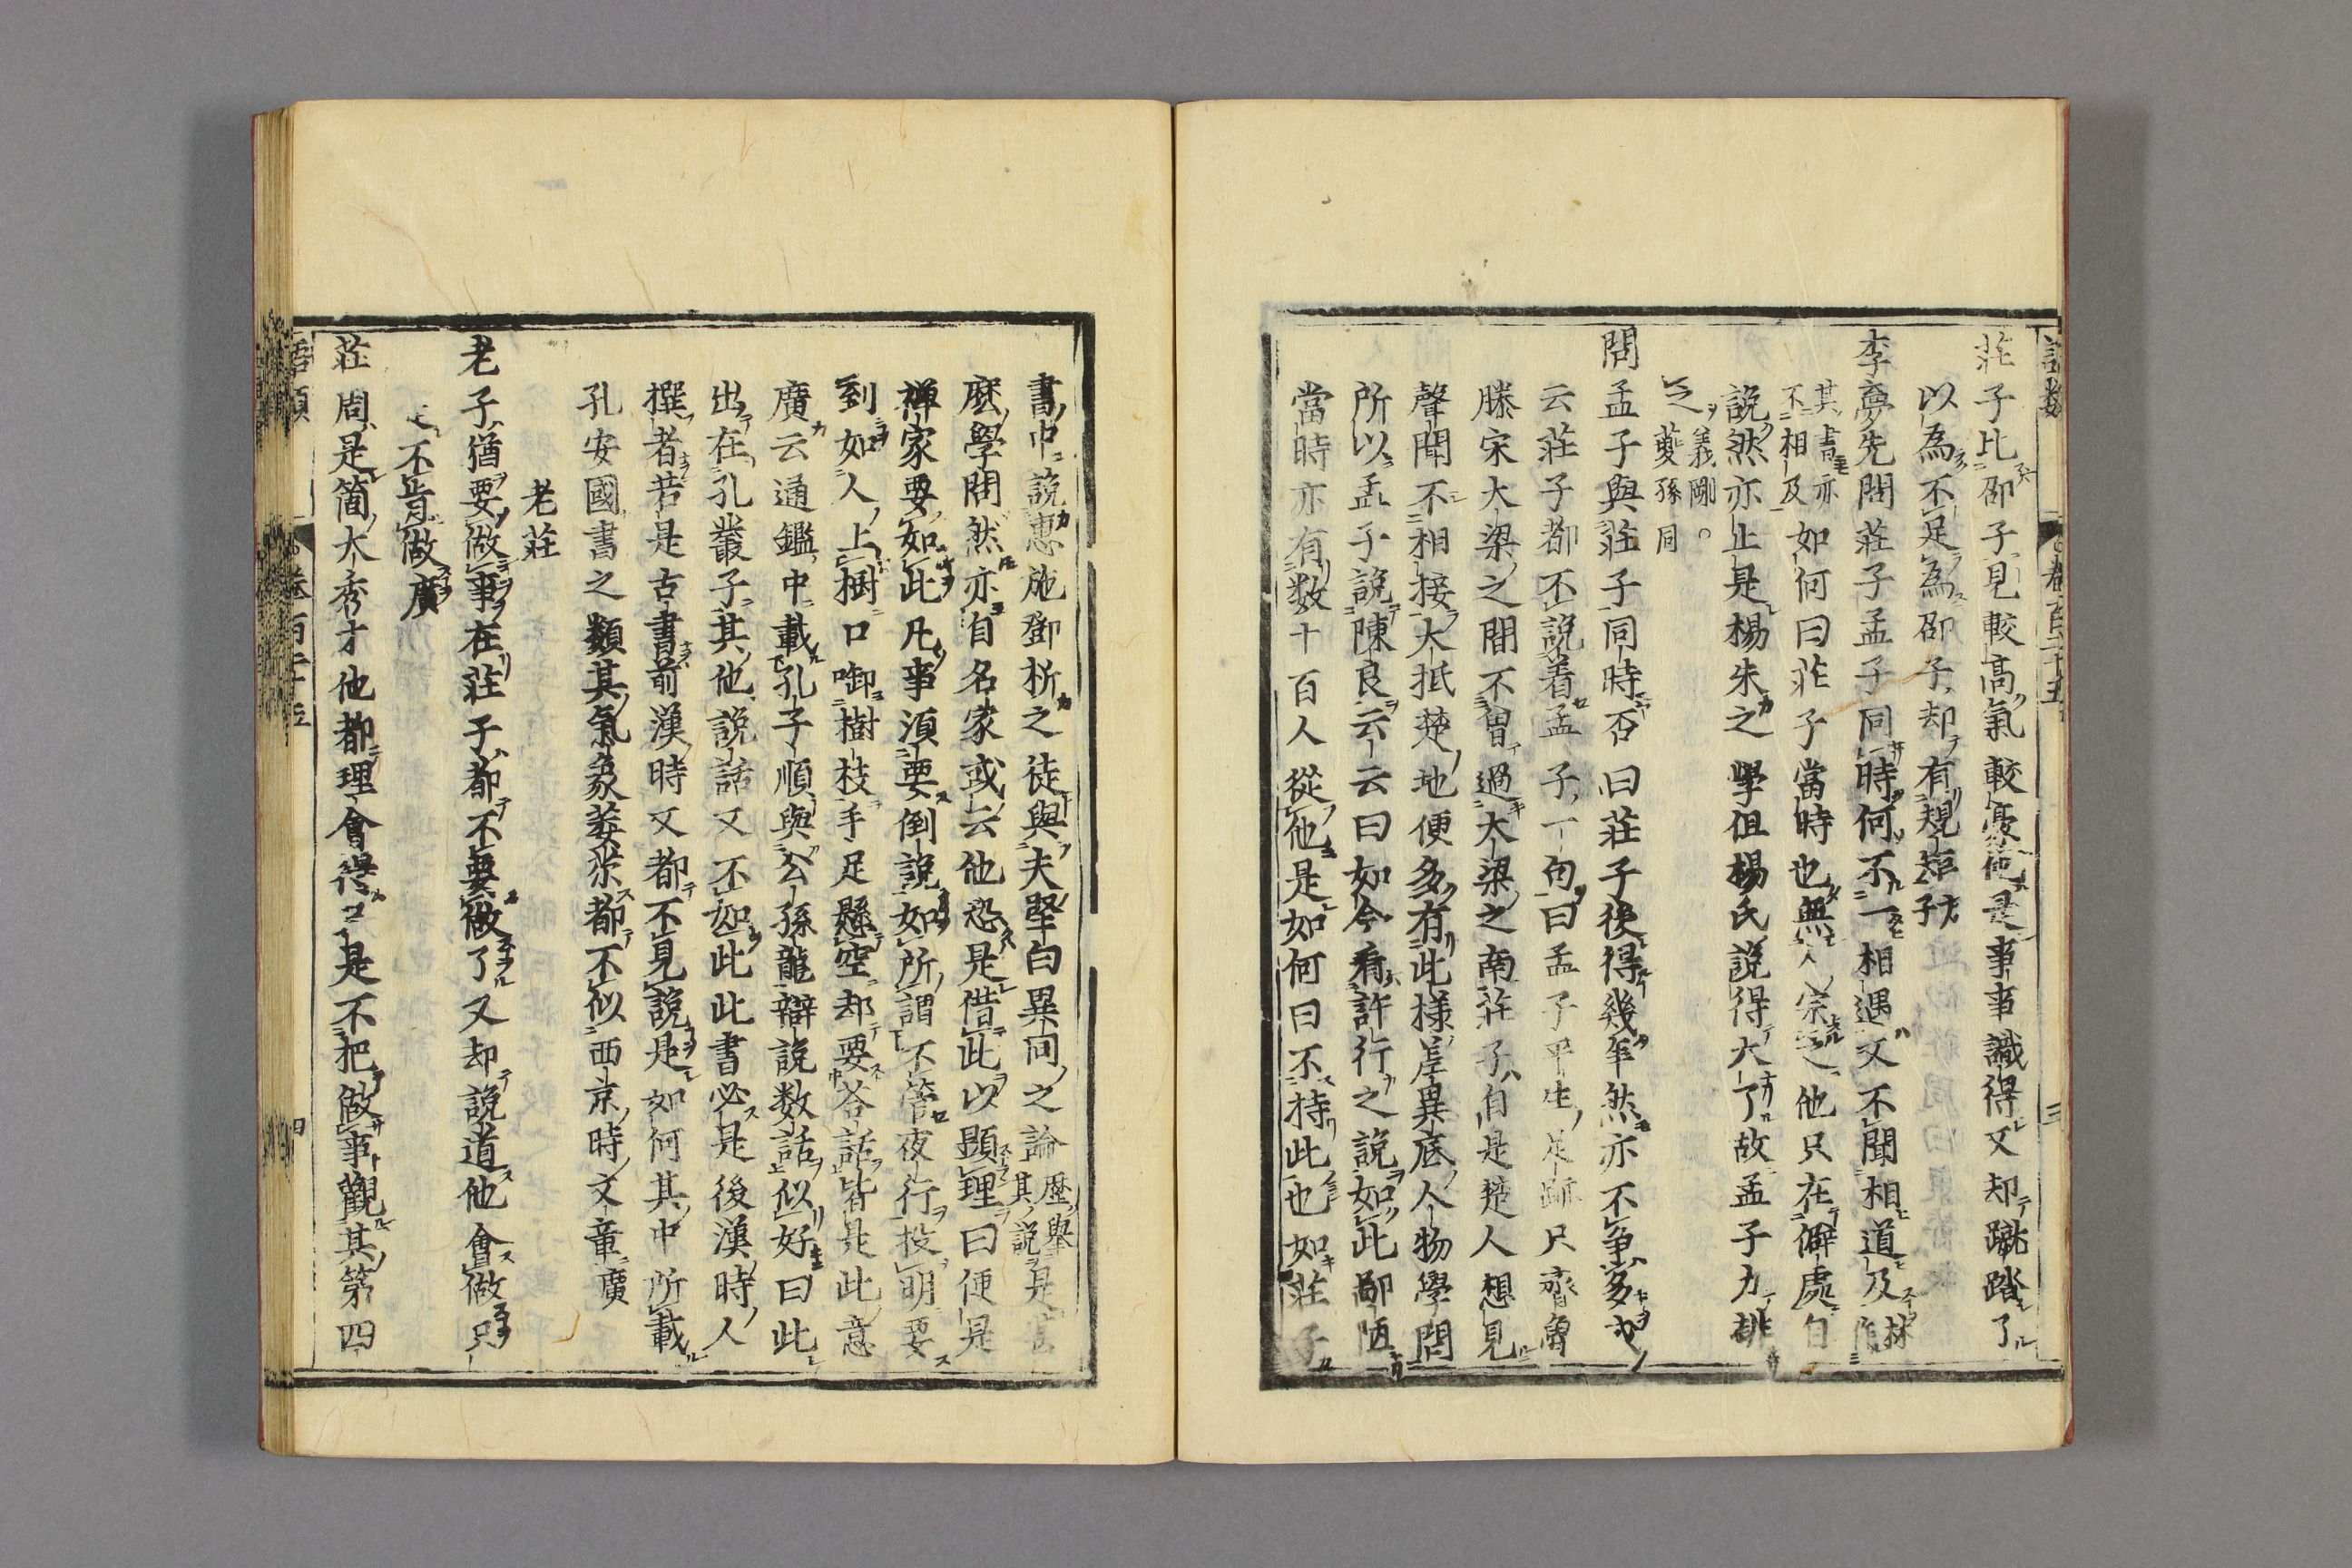 莊子比邵子見較高氣較豪他是事事識得又却蹴踏了
以為不足為邵子却有規矩方子
李夢先問莊子孟子同時何不一相遇又不聞相道及林作
其書亦不相及如何曰莊子當時也無人宗之他只在僻處自
說然亦止是楊朱之學但楊氏說得大了故孟子力排
之義剛。夔孫同
問孟子與莊子同時否曰莊子後得幾年然亦不爭多或
云莊子都不說着孟子一句曰孟子平生足跡只齊魯
滕宋大梁之間不曾過大梁之南莊子自是楚人想見
聲聞不相接大抵楚地便多有此樣差異底人物學問
所以孟子說陳良云云曰如今看許行之說如此鄙陋
當時亦有数十百人從他是如何曰不特此也如莊子
書中說惠施鄧析之徒與夫堅白異同之論歷舉其說是甚
麽學問然亦自名家或云他恐是借此以顯理曰便是
禅家要如此凡事須要倒說如所謂不管夜行投明要
到如人上樹口啣樹枝手足懸空却要荅話皆是此意
廣云通鑑中載孔子順與公孫龍辯說数話似好曰此
出在孔叢子其他說話又不如此此書必是後漢時人
撰者若是古書前漢時又都不見說是如何其中所載
孔安國書之類其氣象萎苶都不似西京時文章廣
老莊
老子猶要做事在莊子都不要做了又却說道他會做只
是不肯做廣
莊周是箇大秀才他都理會得只是不把做事觀其第四